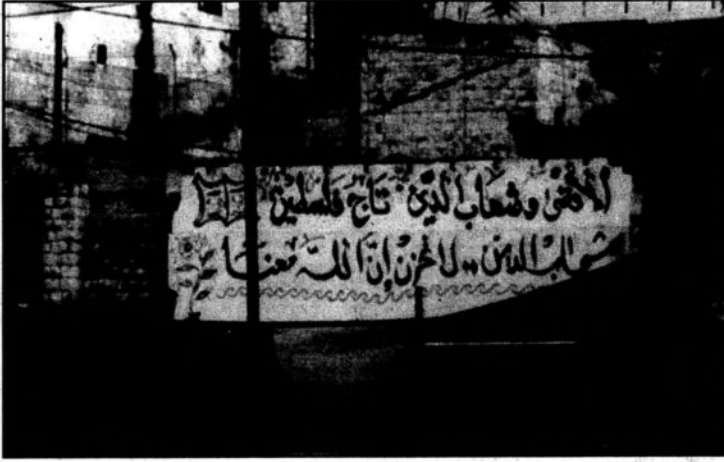 الأقصى وشهاب الدين تاج فلسطين
شهاب الدين .. لا تحزن إن الله معنا